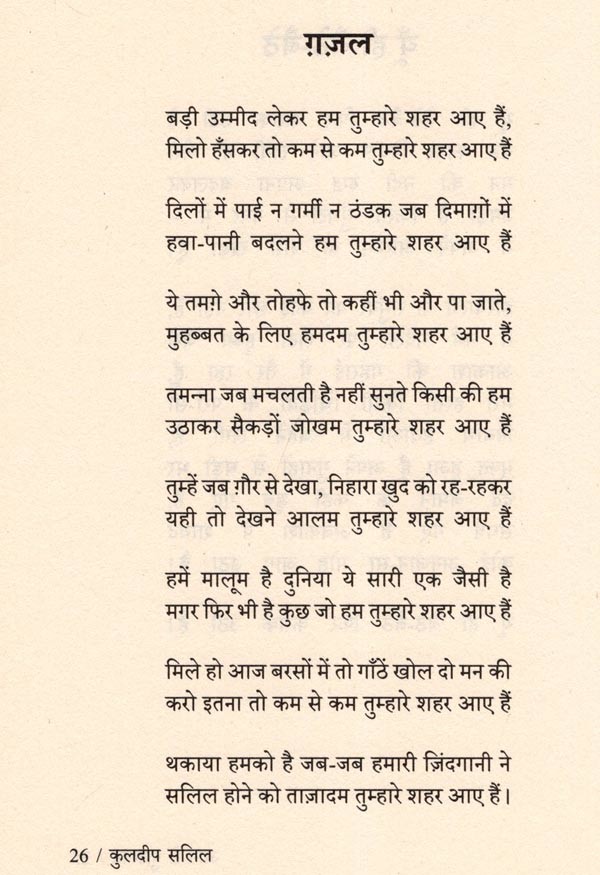 ग़ज़ल
बड़ी उम्मीद लेकर हम तुम्हारे शहर आए हैं,
मिलो हँसकर तो कम से कम तुम्हारे शहर आए हैं
दिलों में पाई न गर्मी न ठंडक जब दिमाग़ों में
हवा-पानी बदलने हम तुम्हारे शहर आए हैं
ये तमग़े और तोहफे तो कहीं भी और पा जाते,
मुहब्बत के लिए हमदम तुम्हारे शहर आए हैं
तमन्ना जब मचलती है नहीं सुनते किसी की हम
उठाकर सैकड़ों जोखम तुम्हारे शहर आए हैं
तुम्हें जब ग़ौर से देखा, निहारा खुद को रह-रहकर
यही तो देखने आलम तुम्हारे शहर आए हैं
हमें मालूम है दुनिया ये सारी एक जैसी है
मगर फिर भी है कुछ जो हम तुम्हारे शहर आए हैं
मिले हो आज बरसों में तो गाँठें खोल दो मन की
करो इतना तो कम से कम तुम्हारे शहर आए हैं
थकाया हमको है जब-जब हमारी ज़िंदगानी ने
सलिल होने को ताज़ादम तुम्हारे शहर आए हैं।
26 / कुलदीप सलिल